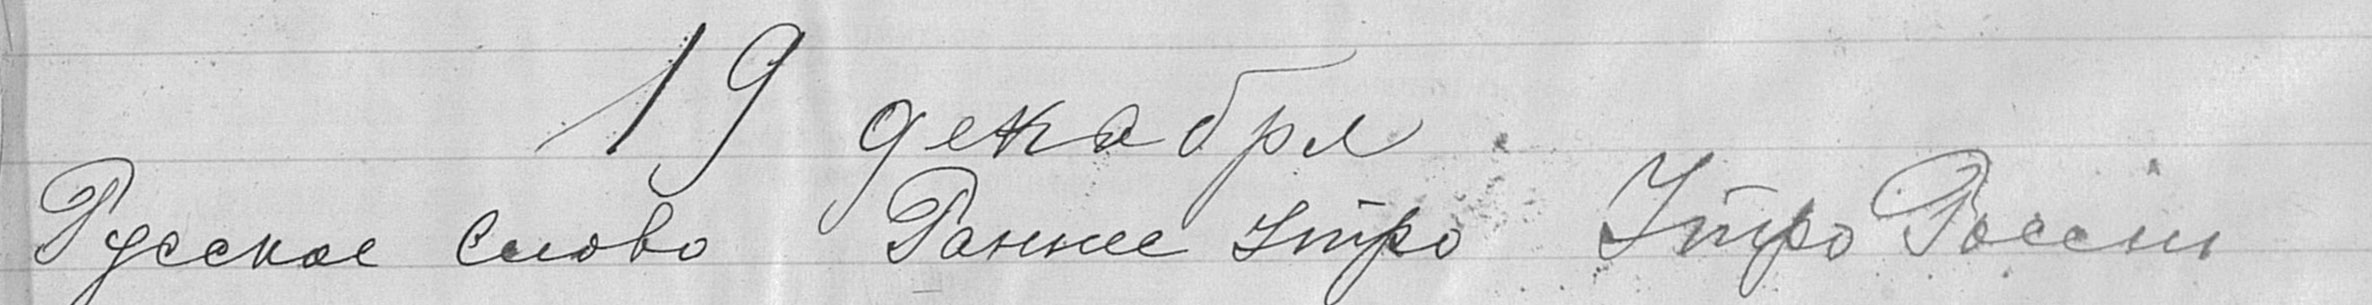 19 декабря
Русское Слово Раннее Утро Утро России